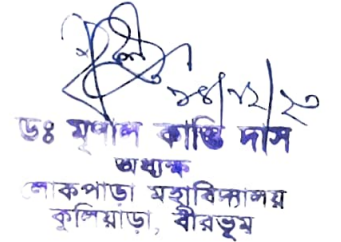 ১৪/১২/২
ডঃ মৃণাল কান্তি দাস
অধ্যক্ষ
লোকপাড়া মহাবিদ্যালয়
কুলিয়াড়া, বীরভূম